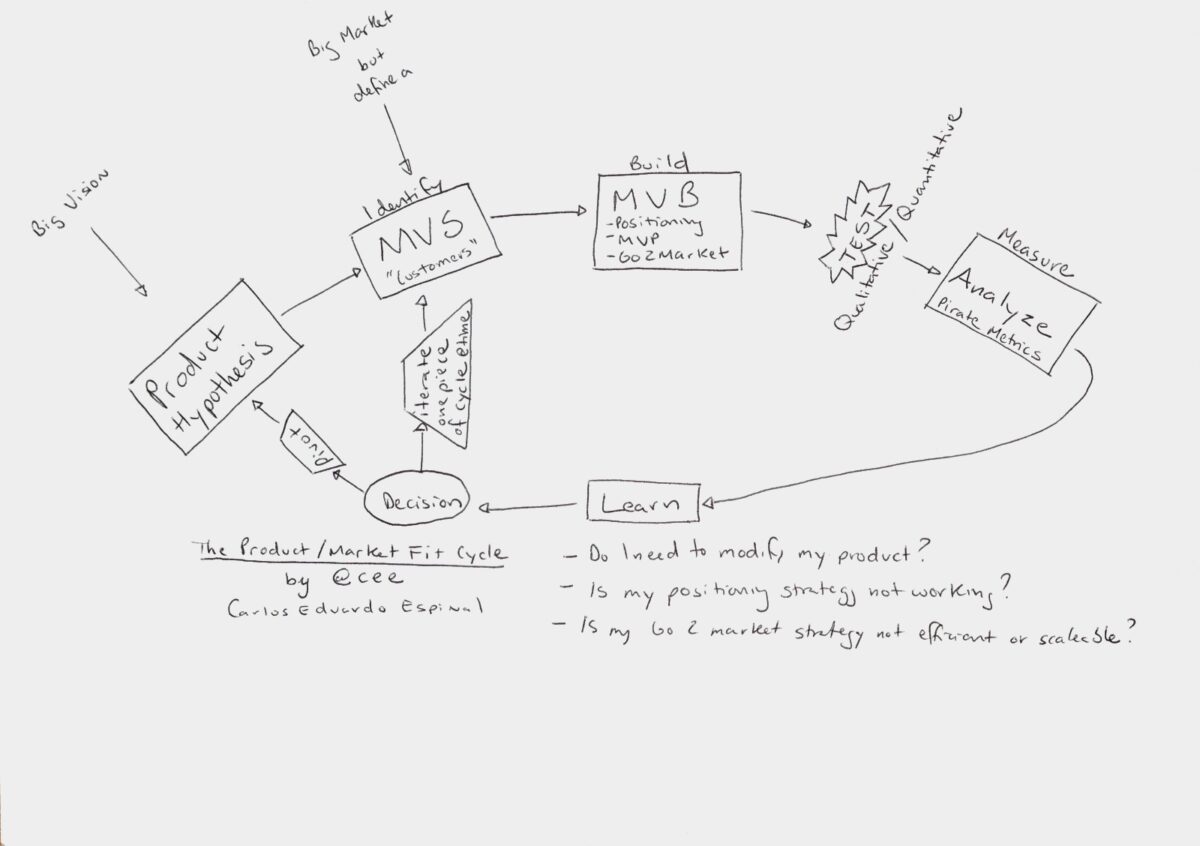 Big Market
but
define a
Big Vision
Identify
MVS
"Customers"
Build
MVB
-Positioning
-MVP
-Go2Market
TEST
Quantitative
Qualitative
Measure
Analyze
Pirate Metrics
Product
Hypothesis
iterate
one piece
of cycle @time
Pivot
Decision
Learn
The Product/Market Fit Cycle
by @cee
Carlos Eduardo Espinal
- Do I need to modify my product?
- Is my positioning strategy not working?
- Is my Go 2 market strategy not efficient or scaleable?